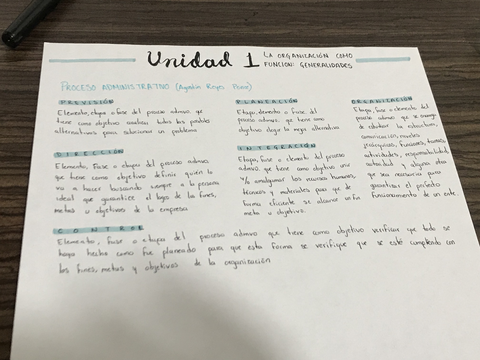 Unidad 1 LA ORGANIZACIÓN COMO
FUNCION: GENERALIDADES
PROCESO ADMINISTRATIVO (Agustín Reyes Ponce)
PREVISIÓN
Elemento, etapa o fase del proceso admvo. que
tiene como objetivo analizar todas las posibles
alternativas para solucionar un problema
PLANEACIÓN
Etapa, elemento o fase del
proceso admvo. que tiene como
objetivo elegir la mejor alternativa
ORGANIZACIÓN
Etapa, fase o elemento del
proceso admvo que se encarga
de elaborar la estructura,
comunicación, niveles
jerárquicos, funciones, humanos,
autoridades, responsabilidad,
autoridad y alguna otra
que sea necesaria para
garantizar el perfecto
funcionamiento de un ente.
DIRECCIÓN
Elemento, Fase o etapa del proceso admvo.
que tiene como objetivo definir quién lo
va a hacer buscando siempre a la persona
ideal que garantice el logro de los fines,
metas u objetivos de la empresa
INTEGRACIÓN
Etapa, fase o elemento del proceso
admvo. que tiene como objetivo unir
y/o amalgamar los recursos humanos,
técnicos y materiales para que de
forma eficiente se alcance un fin
meta u objetivo.
CONTROL
Elemento, fase o etapa del proceso admvo que tiene como objetivo verificar que todo se
haya hecho como fue planeado para que esta forma se verifique que se esté cumpliendo con
los fines, metas y objetivos de la organización